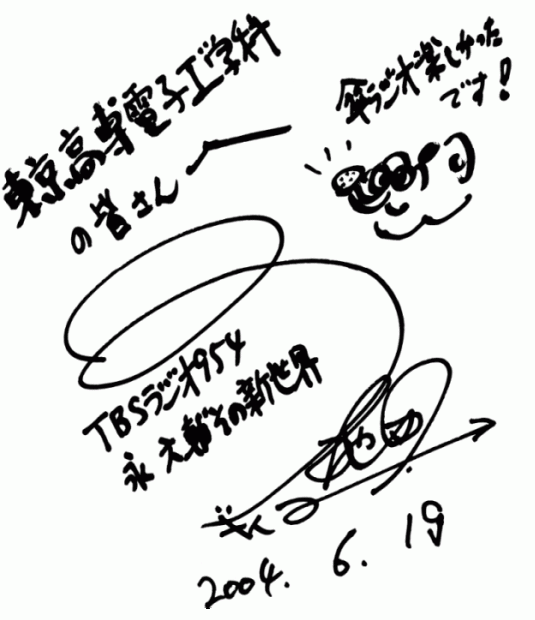 東京高専電子工学科
の皆さん
傘ラジオ楽しかった
です!
TBSラジオ954
永六輔その新世界
2004. 6. 19